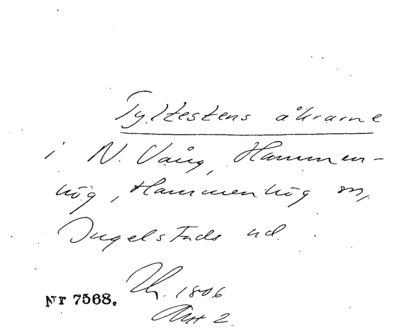 Tyltestens åkrarne
i N. Vång, Hammen-
hög, Hammenhög sn,
Ingelstads hd.
Nr 7568.
1806
Akt 2